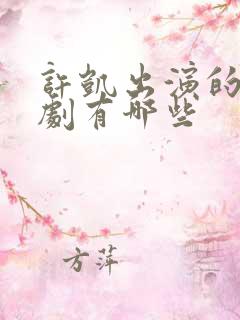 許凱出演的
劇有哪些
方萍